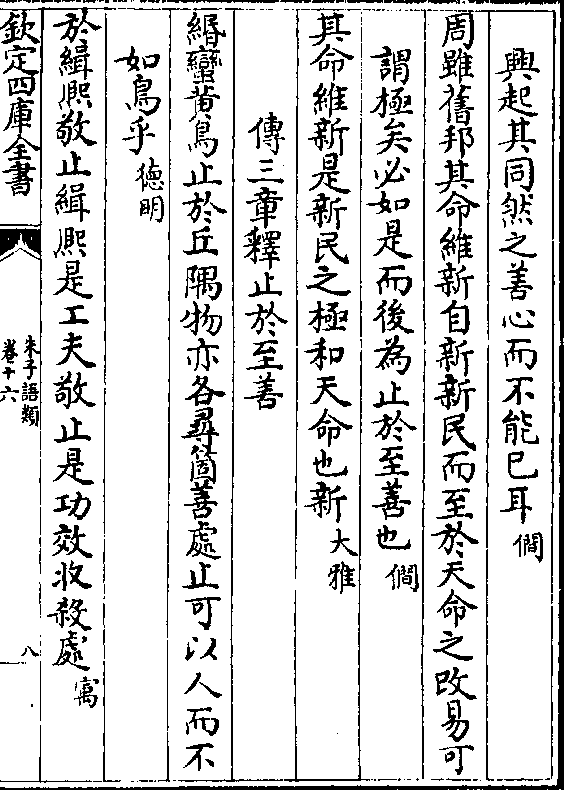 興起其同然之善心而不能已耳 僩
周雖舊邦其命維新自新新民而至於天命之改易可
謂極矣必如是而後為止於至善也 僩
其命維新是新民之極和天命也新 大雅
傳三章釋止於至善
緡蠻黄鳥止於丘隅物亦各尋箇善處止可以人而不
如鳥乎 德明
於緝熙敬止緝熙是工夫敬止是功效收殺處 㝢
欽定四庫全書
朱子語類
卷十六
八